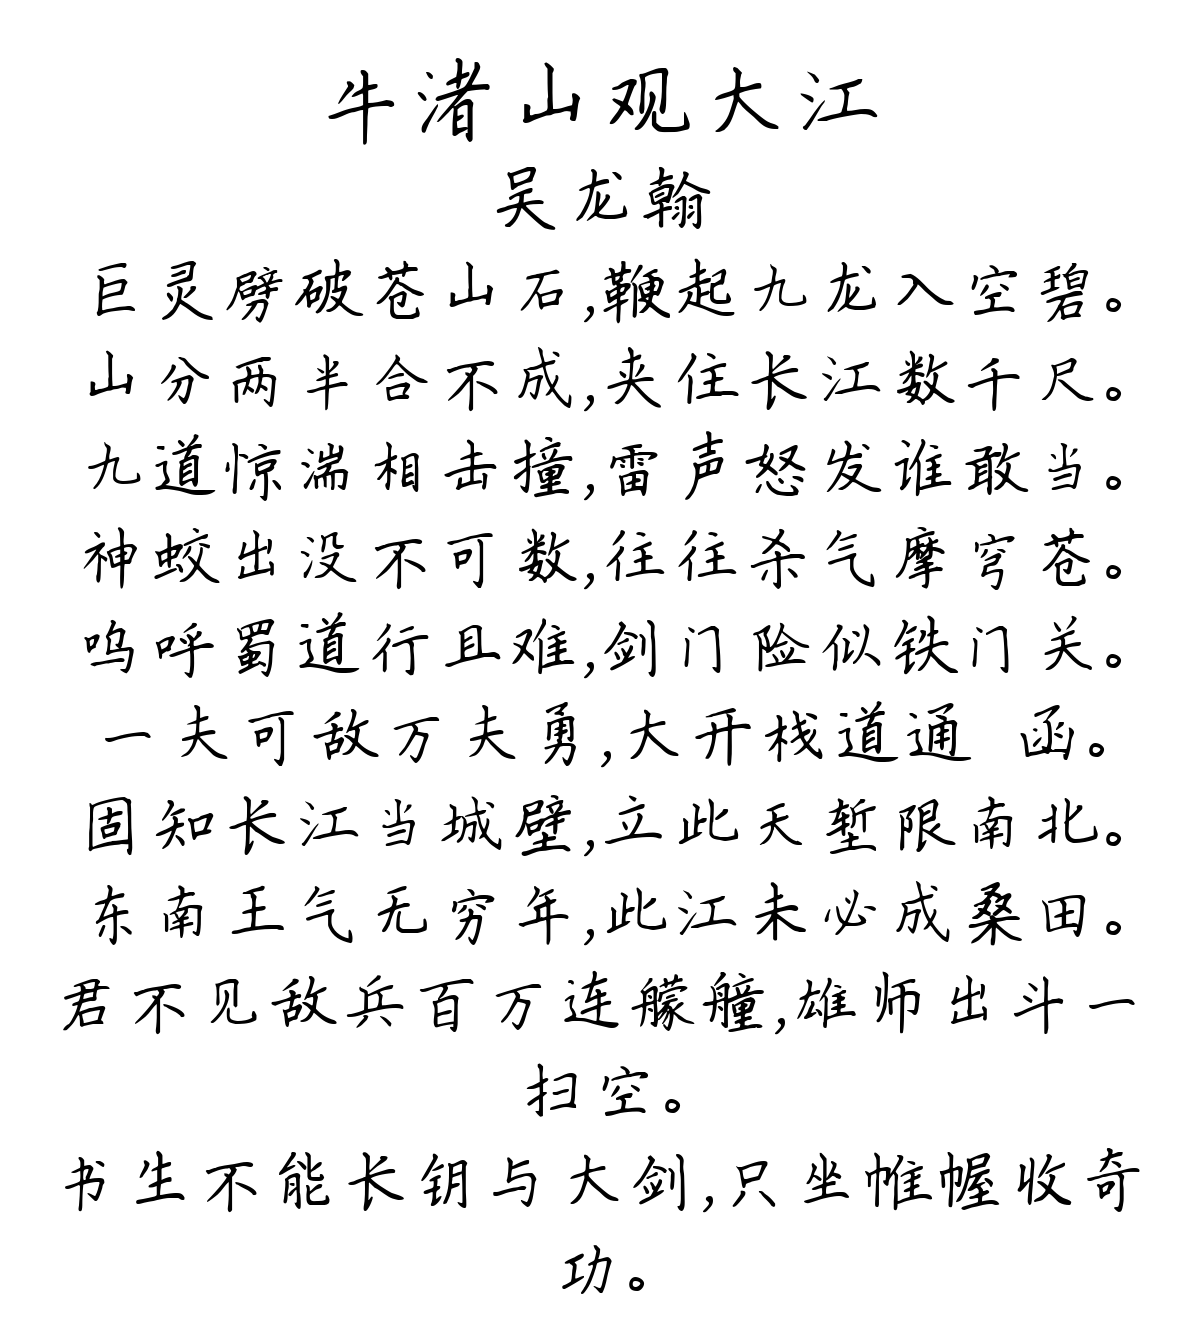 牛渚山观大江
吴龙翰
巨灵劈破苍山石,鞭起九龙入空碧。
山分两半合不成,夹住长江数千尺。
九道惊湍相击撞,雷声怒发谁敢当。
神蛟出没不可数,往往杀气摩穹苍。
呜呼蜀道行且难,剑门险似铁门关。
一夫可敌万夫勇,大开栈道通 函。
固知长江当城壁,立此天堑限南北。
东南王气无穷年,此江未必成桑田。
君不见敌兵百万连艨艟,雄师出斗一
扫空。
书生不能长钥与大剑,只坐帷幄收奇
功。